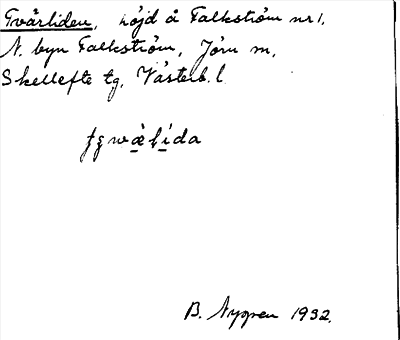 Tvärliden, höjd å Falkström nr 1,
N. byn Falkström, Jörn sn,
Skellefte tg, Västerb. l.
B. Nygren 1932.